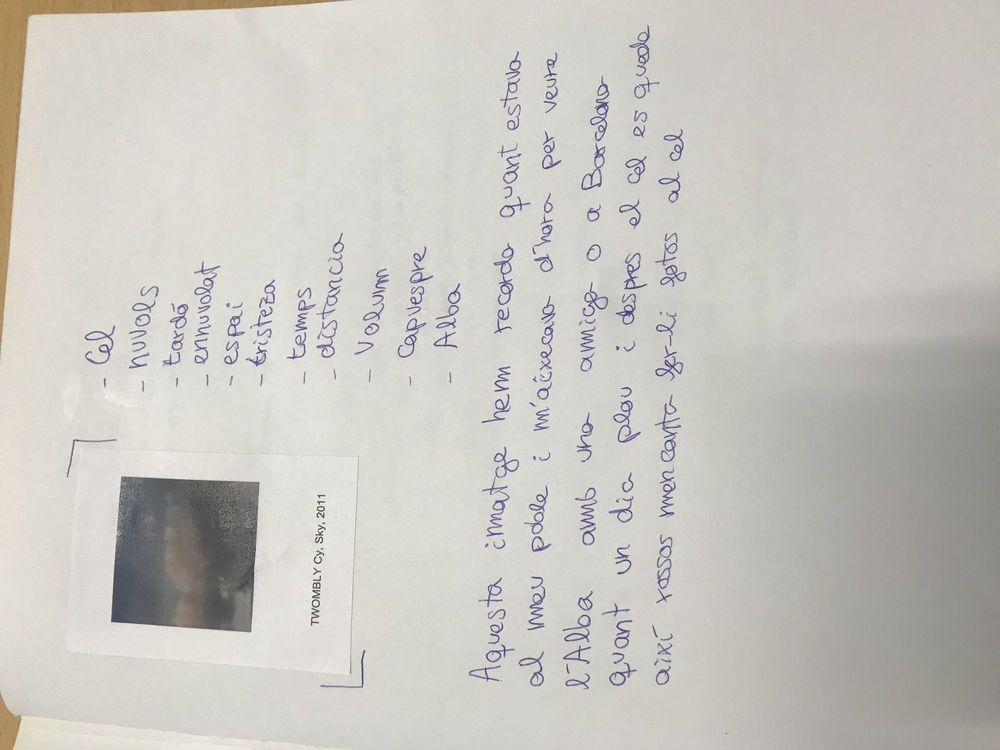 TWOMBLY Cy, Sky, 2011
- Cel
- nuvols
- tardó
- ennuvolat
- espai
- tristeza
- temps
- distancia
- Volum
- Capvespre
- Alba
Aquesta imatge hem recorda quant estava
al meu poble i m'aixecava d'hora per veure
l'Alba amb una amiga o a Barcelona
quant un dia plou i despres el cel es queda
així rassos mencanta fer-li fotos al cel